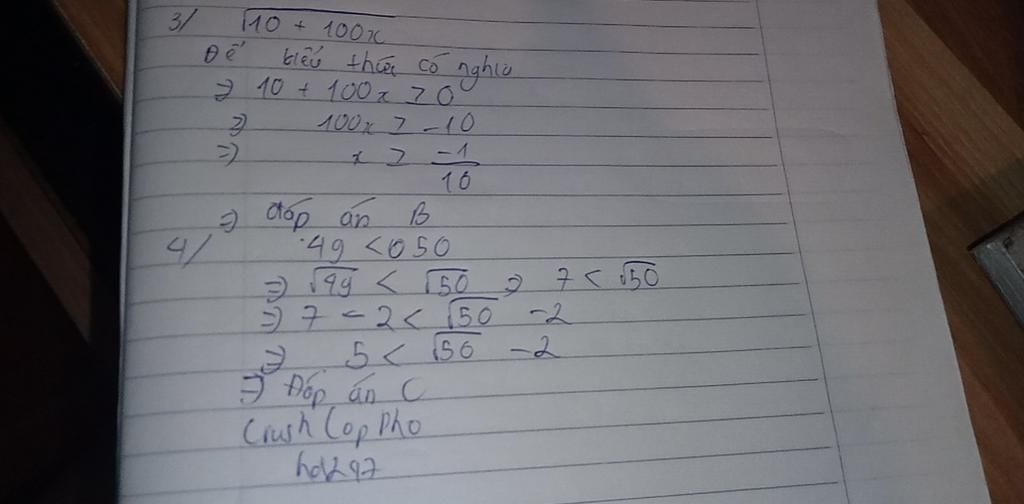 3/ √10 + 100x
Để biểu thức có nghĩa
⇒ 10 + 100x ≥ 0
⇒ 100x ≥ -10
⇒ x ≥ -1/10
⇒ Đáp án B
4/ 49 < 050
⇒ √49 < √50 ⇒ 7 < √50
⇒ 7 - 2 < √50 - 2
⇒ 5 < √50 - 2
⇒ Đáp án C
Crush Lop Pho